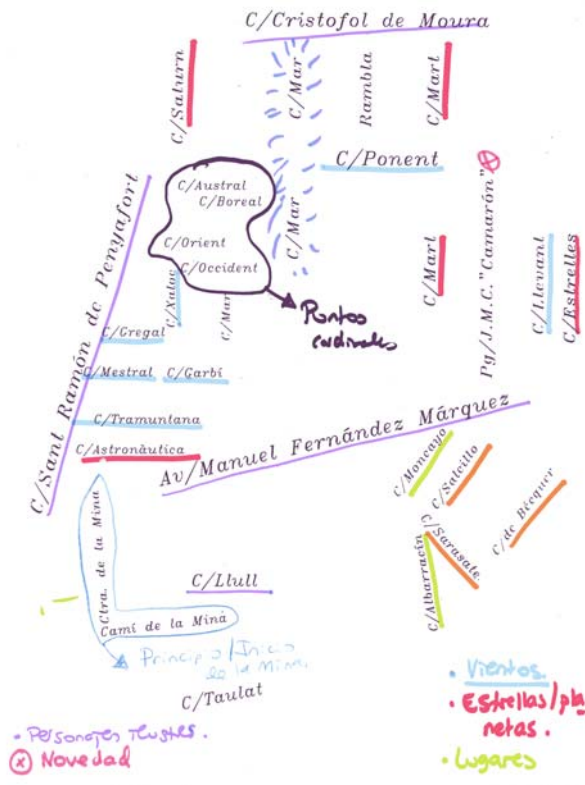 C/Cristofol de Moura
C/Saturn
C/Mar
Rambla
C/Mart
C/Ponent
C/Austral
C/Boreal
C/Orient
C/Occident
C/Mar
C/Mart
Pg/J.M.C."Camarón"
C/Llevant
C/Estrelles
C/Sant Ramón de Penyafort
C/Xaloc
C/Mar
Puntos
cardinales
C/Gregal
C/Mestral
C/Garbí
C/Tramuntana
C/Astronàutica
Av/Manuel Fernández Márquez
C/Moncayo
C/Salcillo
C/de Bécquer
C/Sarasate
C/Albarracín
Ctra. de la Mina
C/Llull
Camí de la Mina
Principio/Inicio
de la Mina.
C/Taulat
• Vientos.
• Estrellas/pla
netas.
• Personajes Ilustres.
x Novedad
• Lugares